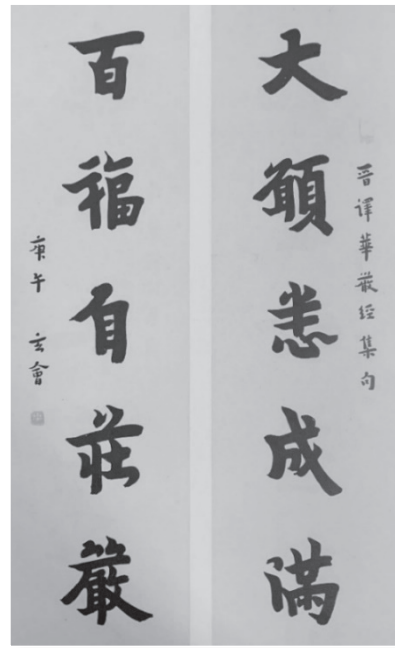 大願悉成滿
晋譯華嚴經集句
百福自莊嚴
庚午 玄會